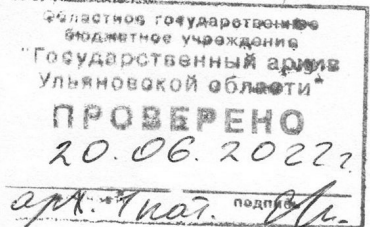 Областное государственное
бюджетное учреждение
"Государственный архив
Ульяновской области"
ПРОВЕРЕНО
20.06.2022г.
арх. 1 кат. подпись